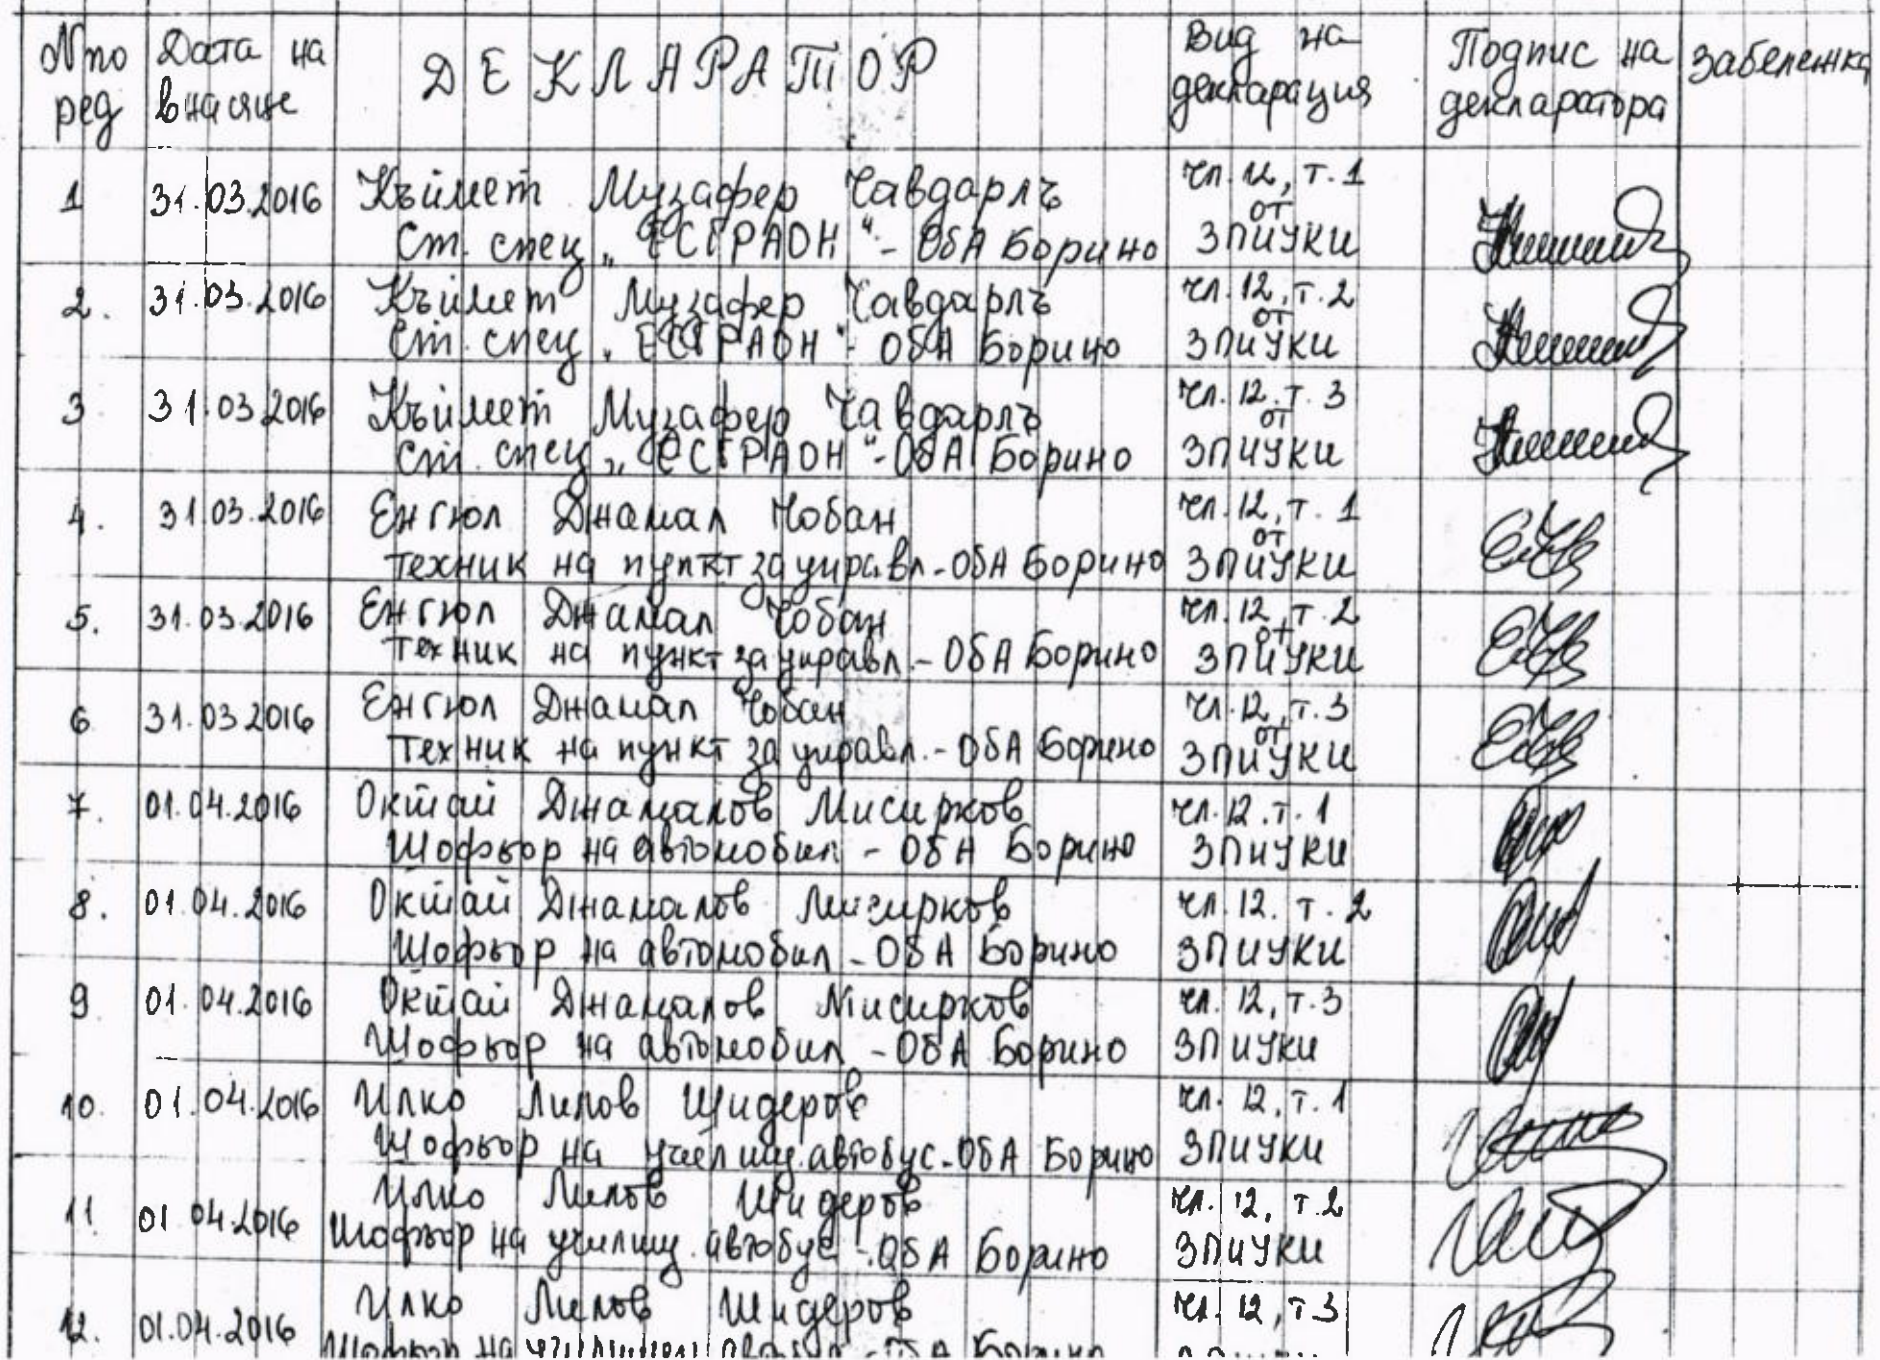 № по ред Дата на внасяне ДЕКЛАРАТОР Вид на декларация Подпис на декларатора Забележка
1 31.03.2016 Къймет Музафер Чавдарлъ чл. 12, т. 1
Ст. спец. „ЕСГРАОН“ - ОбА Борино от ЗПИУКИ
2. 31.03.2016 Къймет Музафер Чавдарлъ чл. 12, т. 2
Ст. спец. „ЕСГРАОН“ - ОбА Борино от ЗПИУКИ
3 31.03.2016 Къймет Музафер Чавдарлъ чл. 12. т. 3
Ст. спец. „ЕСГРАОН“ - ОбА Борино от ЗПИУКИ
4. 31.03.2016 Енгюл Джамал Чобан чл. 12, т. 1
техник на пункт за управл. - ОбА Борино от ЗПИУКИ
5. 31.03.2016 Енгюл Джамал Чобан чл. 12, т. 2
техник на пункт за управл. - ОбА Борино от ЗПИУКИ
6 31.03.2016 Енгюл Джамал Чобан чл. 12, т. 3
техник на пункт за управл. - ОбА Борино от ЗПИУКИ
7. 01.04.2016 Октай Джамалов Мисирков чл. 12. т. 1
Шофьор на автомобил - ОбА Борино ЗПИУКИ
8. 01.04.2016 Октай Джамалов Мисирков чл. 12. т. 2
Шофьор на автомобил - ОбА Борино ЗПИУКИ
9 01.04.2016 Октай Джамалов Мисирков чл. 12, т. 3
Шофьор на автомобил - ОбА Борино ЗПИУКИ
10. 01.04.2016 Илко Лилов Шидеров чл. 12, т. 1
Шофьор на училищ. автобус - ОбА Борино ЗПИУКИ
11 01.04.2016 Илко Лилов Шидеров чл. 12, т. 2
Шофьор на училищ. автобус - ОбА Борино ЗПИУКИ
12. 01.04.2016 Илко Лилов Шидеров чл. 12, т 3
Шофьор на